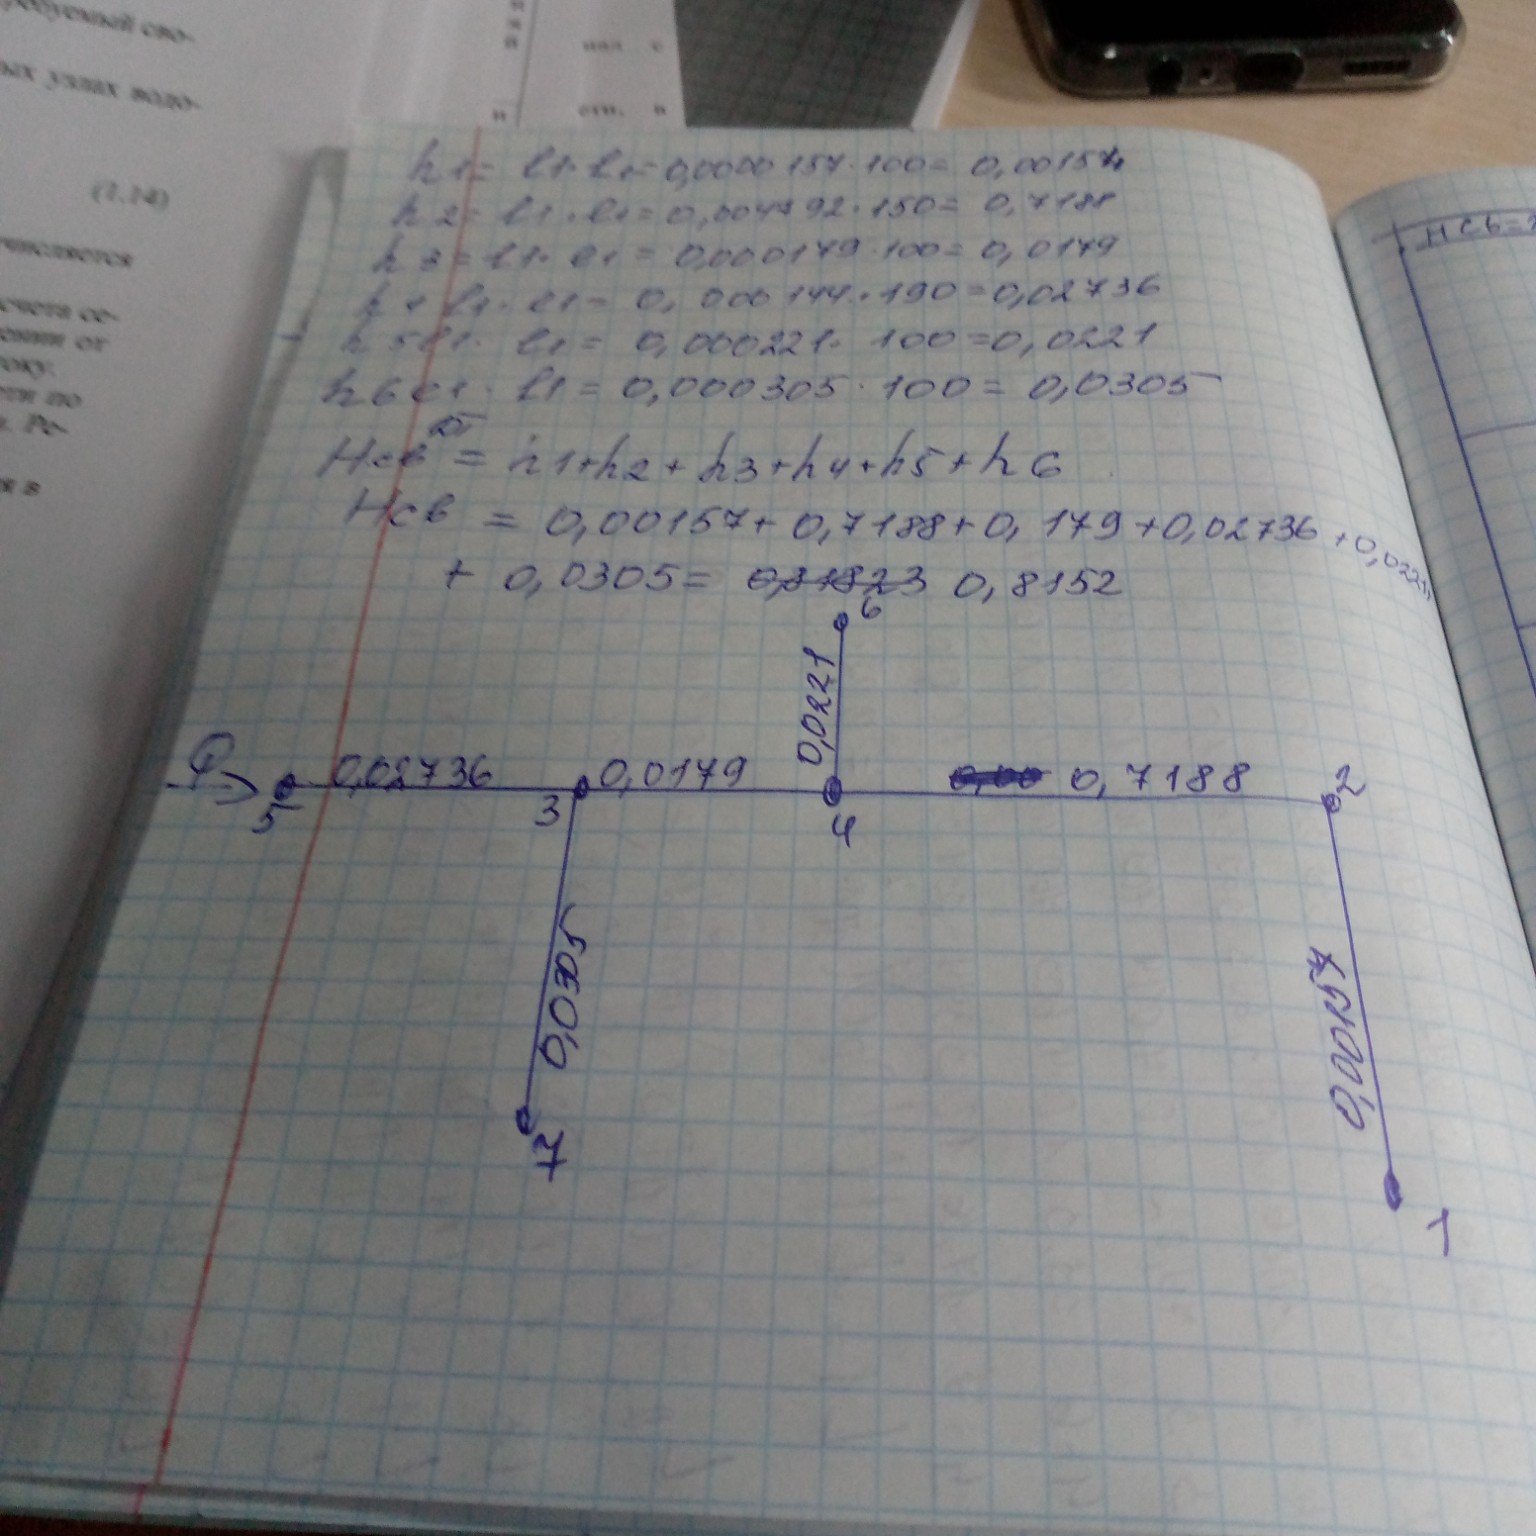 ребуемый сво-
ых узлах водо-
(1.14)
числяется
счета се-
ении от
току.
ети по
. Ре-
я в
нал с
сти. в
h1= l1·l1=0,0000157·100= 0,00157
h2= l1·l1=0,004792·150= 0,7188
h3=l1·l1=0,000179·100=0,0179
l1·l1= 0,000144·190=0,02736
h5 l1· l1= 0,000221·100=0,0221
h6 l1·l1=0,000305·100=0,0305
Hсв = h1+h2+h3+h4+h5+h6
Hсв = 0,00157+0,7188+0,179+0,02736+0,0221
+ 0,0305= 0,8152
6
0,0221
5 0,02736 3 0,0179 4 0,7188 2
0,0305
7
0,00157
1
Hсв=